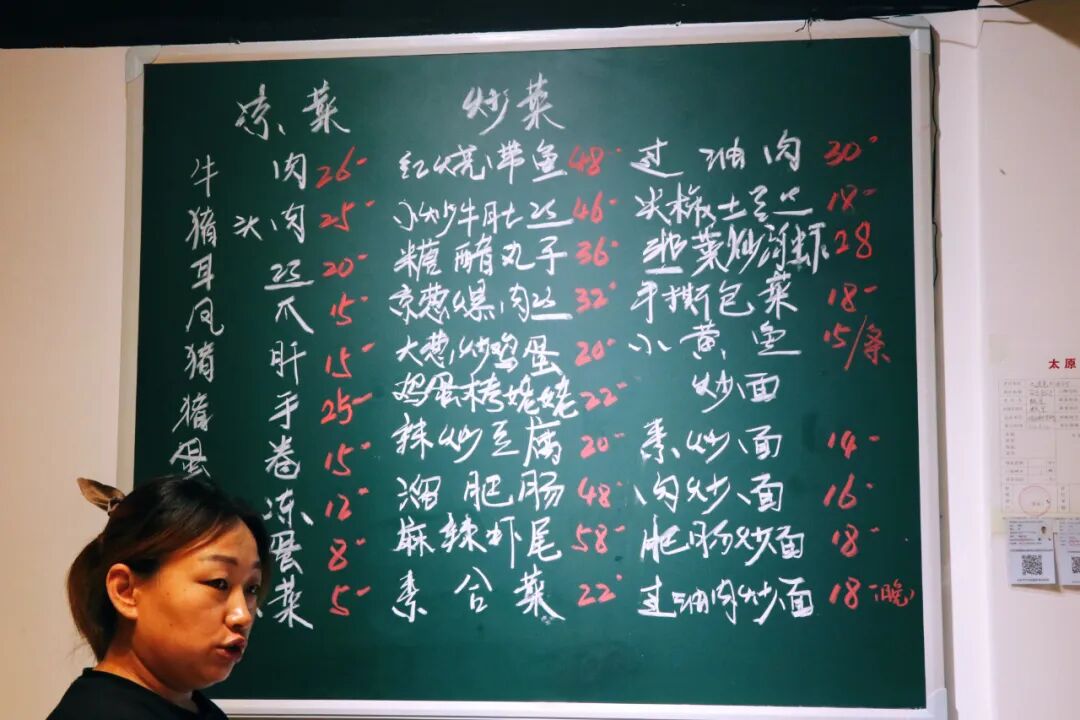 凉菜
牛肉 26-
猪头肉 25-
耳丝 20-
凤爪 15-
猪肝 15-
猪手 25-
蛋卷 15-
冻 12-
蛋 8-
菜 5-
炒菜
红烧带鱼 48-
小炒牛肚丝 46-
糖醋丸子 36-
京葱爆肉丝 32-
大葱炒鸡蛋 20-
鸡蛋栲姥姥 22-
辣炒豆腐 20-
溜肥肠 48-
麻辣虾尾 58-
素合菜 22-
过油肉 30-
尖椒土豆丝 18-
韭菜炒河虾 28
手撕包菜 18-
小黄鱼 15/条
炒面
素炒面 14-
肉炒面 16-
肥肠炒面 18-
过油肉炒面 18-(晚)
太原